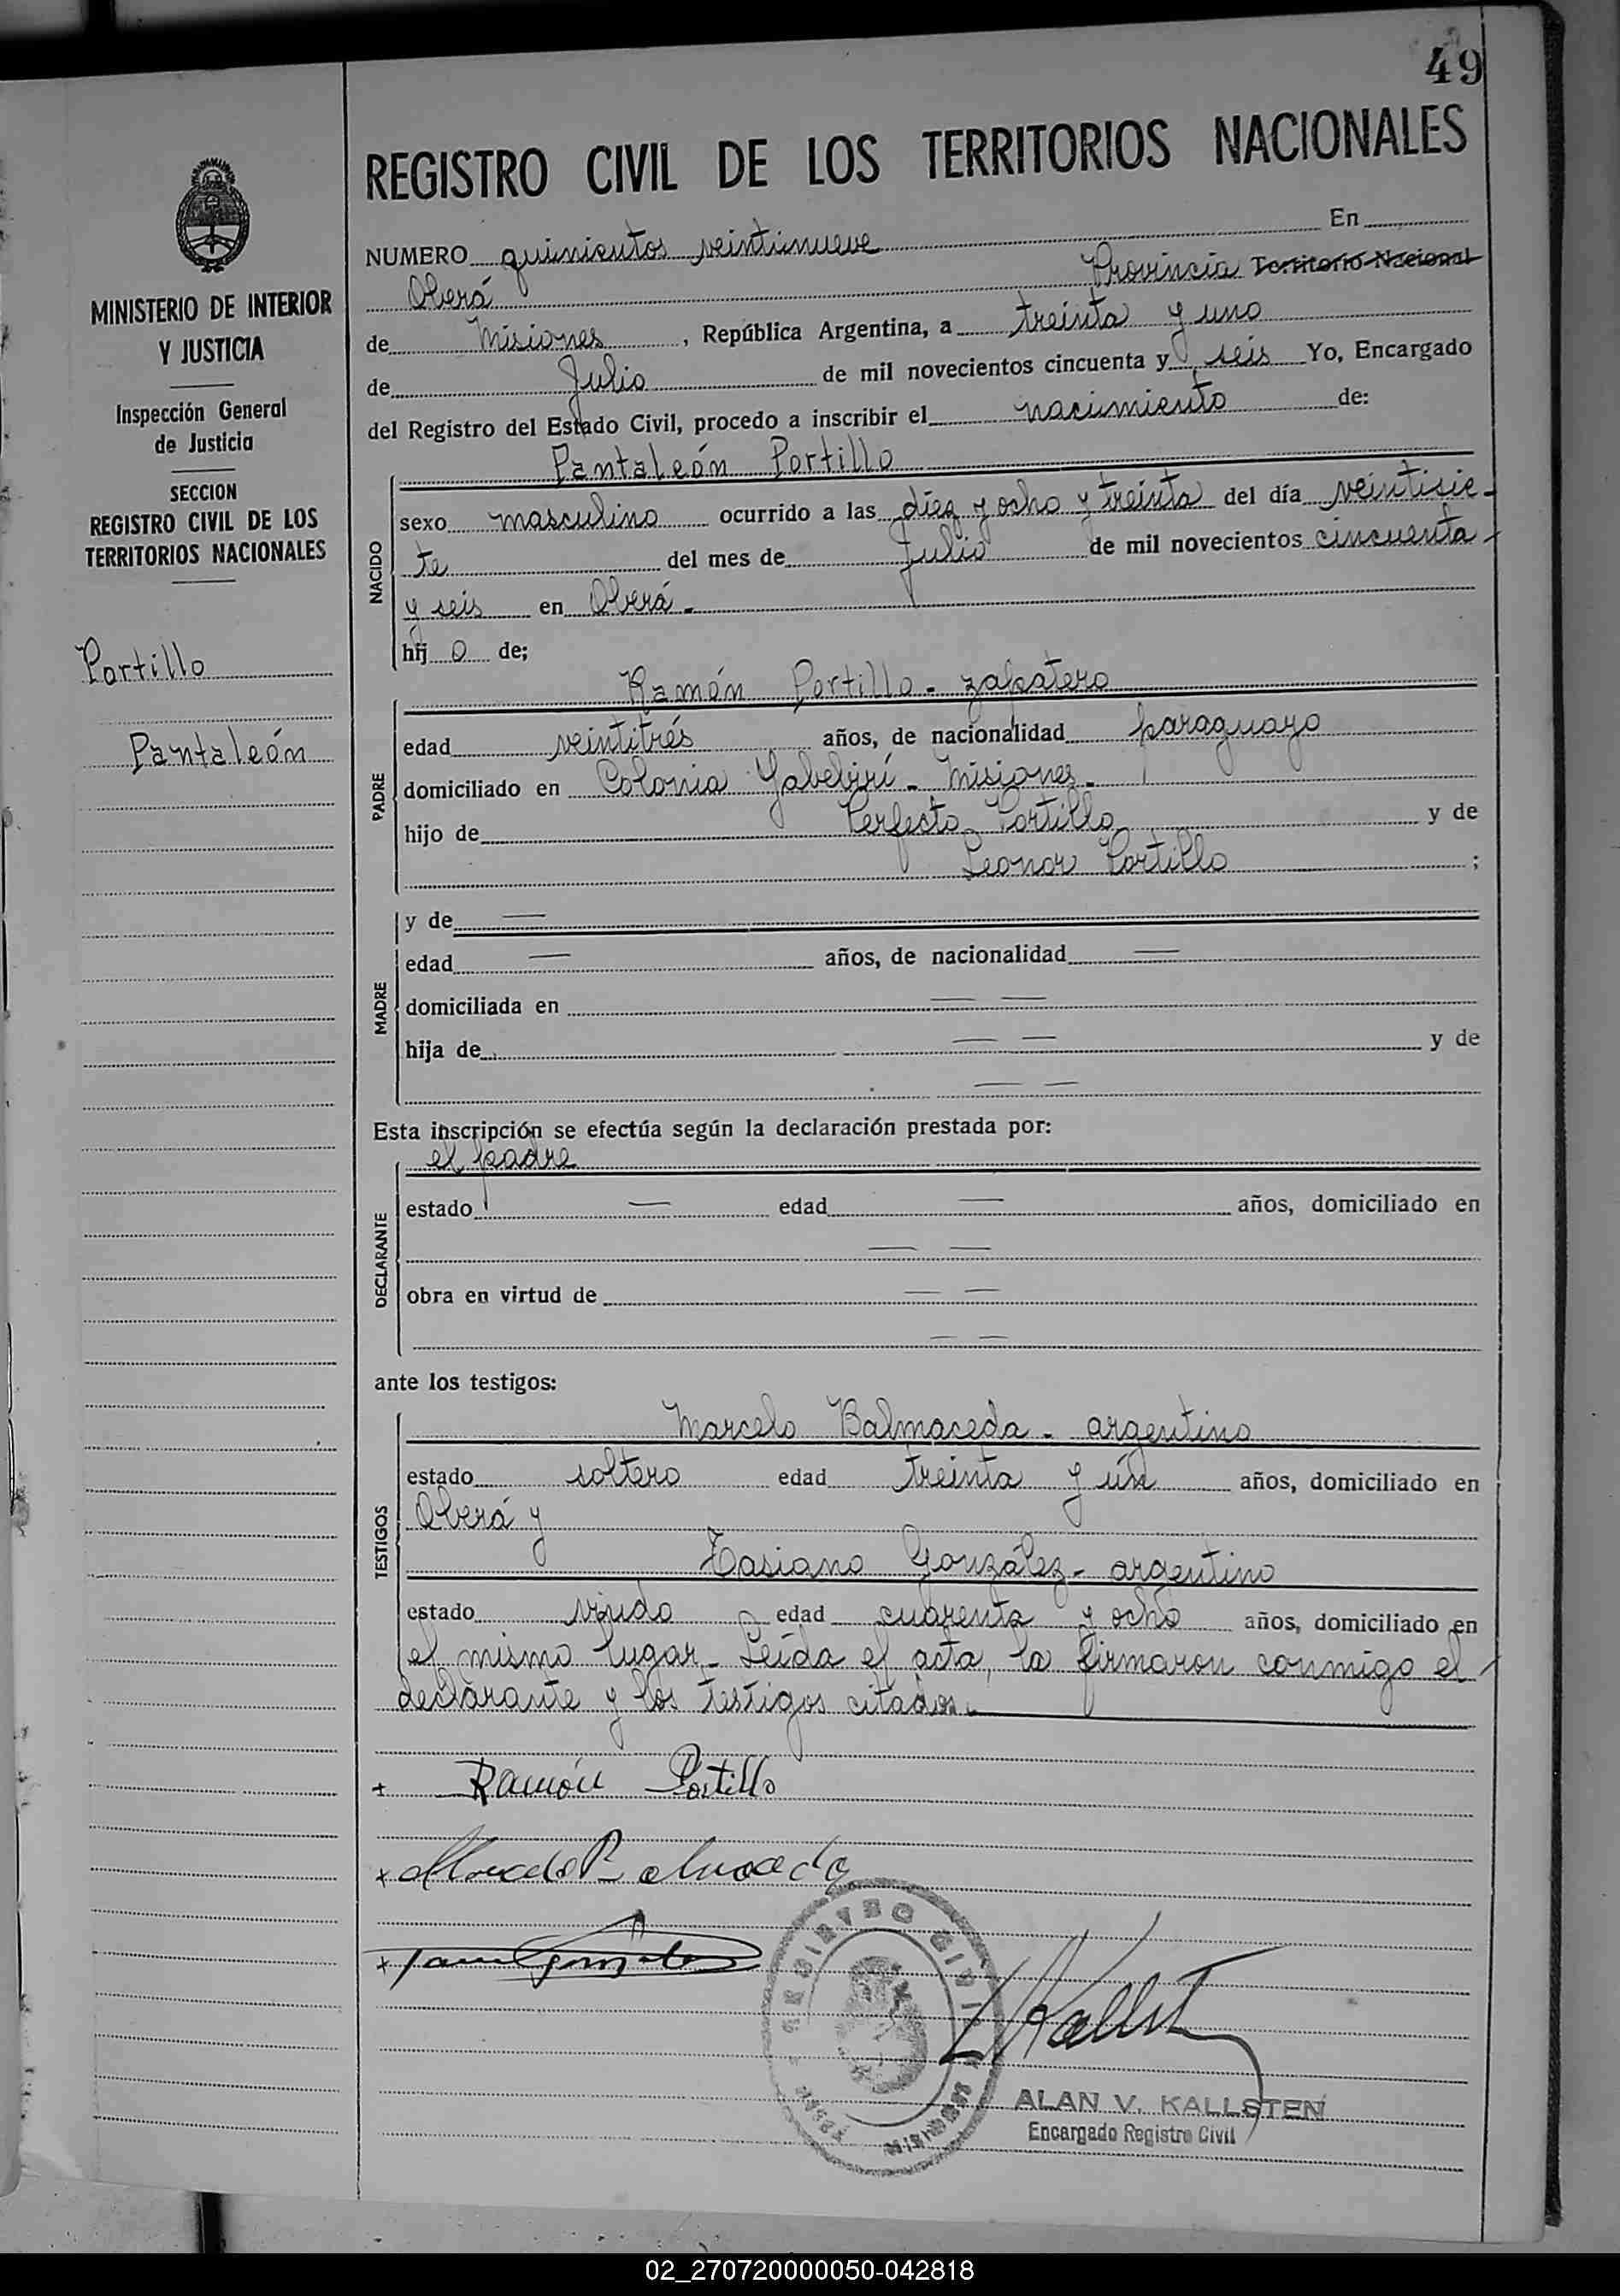 49
REGISTRO CIVIL DE LOS TERRITORIOS NACIONALES
MINISTERIO DE INTERIOR
Y JUSTICIA
Inspección General
de Justicia
SECCION
REGISTRO CIVIL DE LOS
TERRITORIOS NACIONALES
Portillo
Pantaleón
NUMERO quinientos veintinueve En
Oberá Provincia Territorio Nacional
de Misiones, República Argentina, a treinta y uno
de Julio de mil novecientos cincuenta y seis Yo, Encargado
del Registro del Estado Civil, procedo a inscribir el nacimiento de:
Pantaleón Portillo
NACIDO
sexo masculino ocurrido a las diez y ocho y treinta del día veintisie-
te del mes de Julio de mil novecientos cincuenta
y seis en Oberá.
hij o de;
Ramón Portillo - zapatero
PADRE
edad veintitrés años, de nacionalidad paraguayo
domiciliado en Colonia Yabebirí - Misiones -
hijo de Perfecto Portillo y de
Leonor Portillo ;
MADRE
y de —
edad — años, de nacionalidad —
domiciliada en — —
hija de — — y de
— —
Esta inscripción se efectúa según la declaración prestada por:
el padre
DECLARANTE
estado — edad — años, domiciliado en
— —
obra en virtud de — —
— —
ante los testigos:
TESTIGOS
Marcelo Balmaceda - argentino
estado soltero edad treinta y ún años, domiciliado en
Oberá y
Tasiano González - argentino
estado viudo edad cuarenta y ocho años, domiciliado en
el mismo lugar - Leída el acta, la firmaron conmigo el
declarante y los testigos citados.
+ Ramón Portillo
x Marcelo Balmaceda
x González
REGISTRO CIVIL
OBERA MISIONES
Kallsten
ALAN V. KALLSTEN
Encargado Registro Civil
02_270720000050-042818